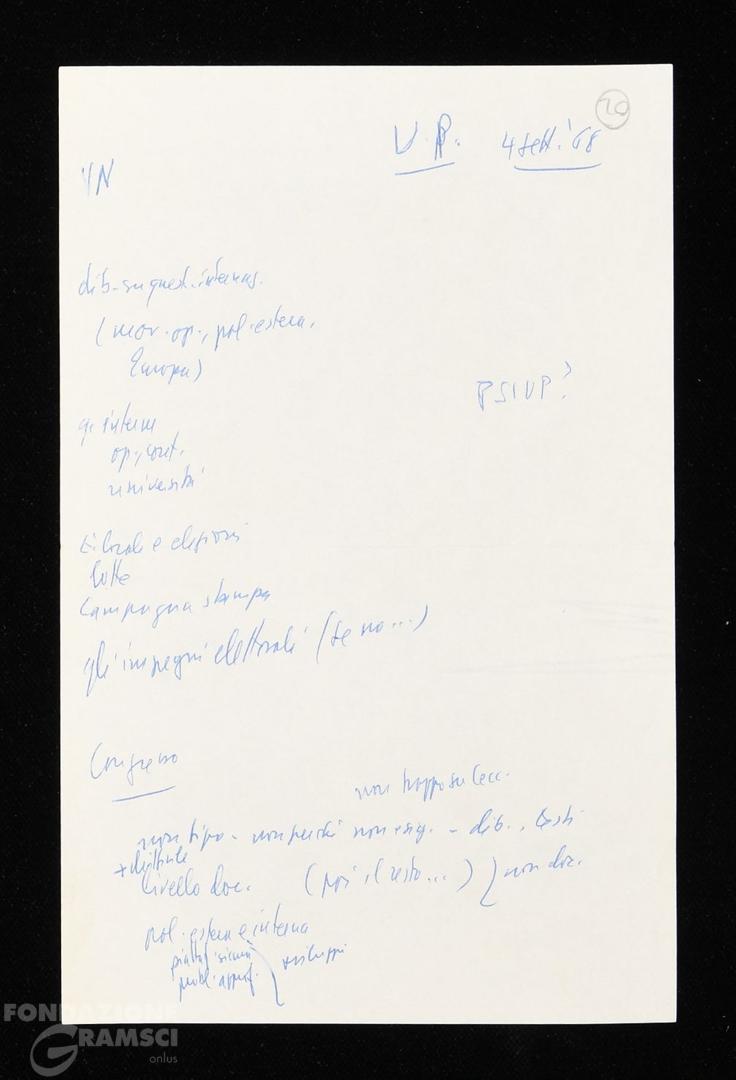 20
U.P. 4 sett. '68
VN
dib. su quest. internaz.
(mov. op., pol. estera,
Europa)
PSIUP?
q. interne
op., cont.
università
lotte
Campagna stampa
gli impegni elettorali (se no...)
Congresso
non troppo su Cecc.
non tipo - non perché non esig. - dib., testi
livello doc. (poi il resto...) non doc.
pol. estera e interna
piattaf. sicura
probl. appr. sviluppi
FONDAZIONE
GRAMSCI
onlus